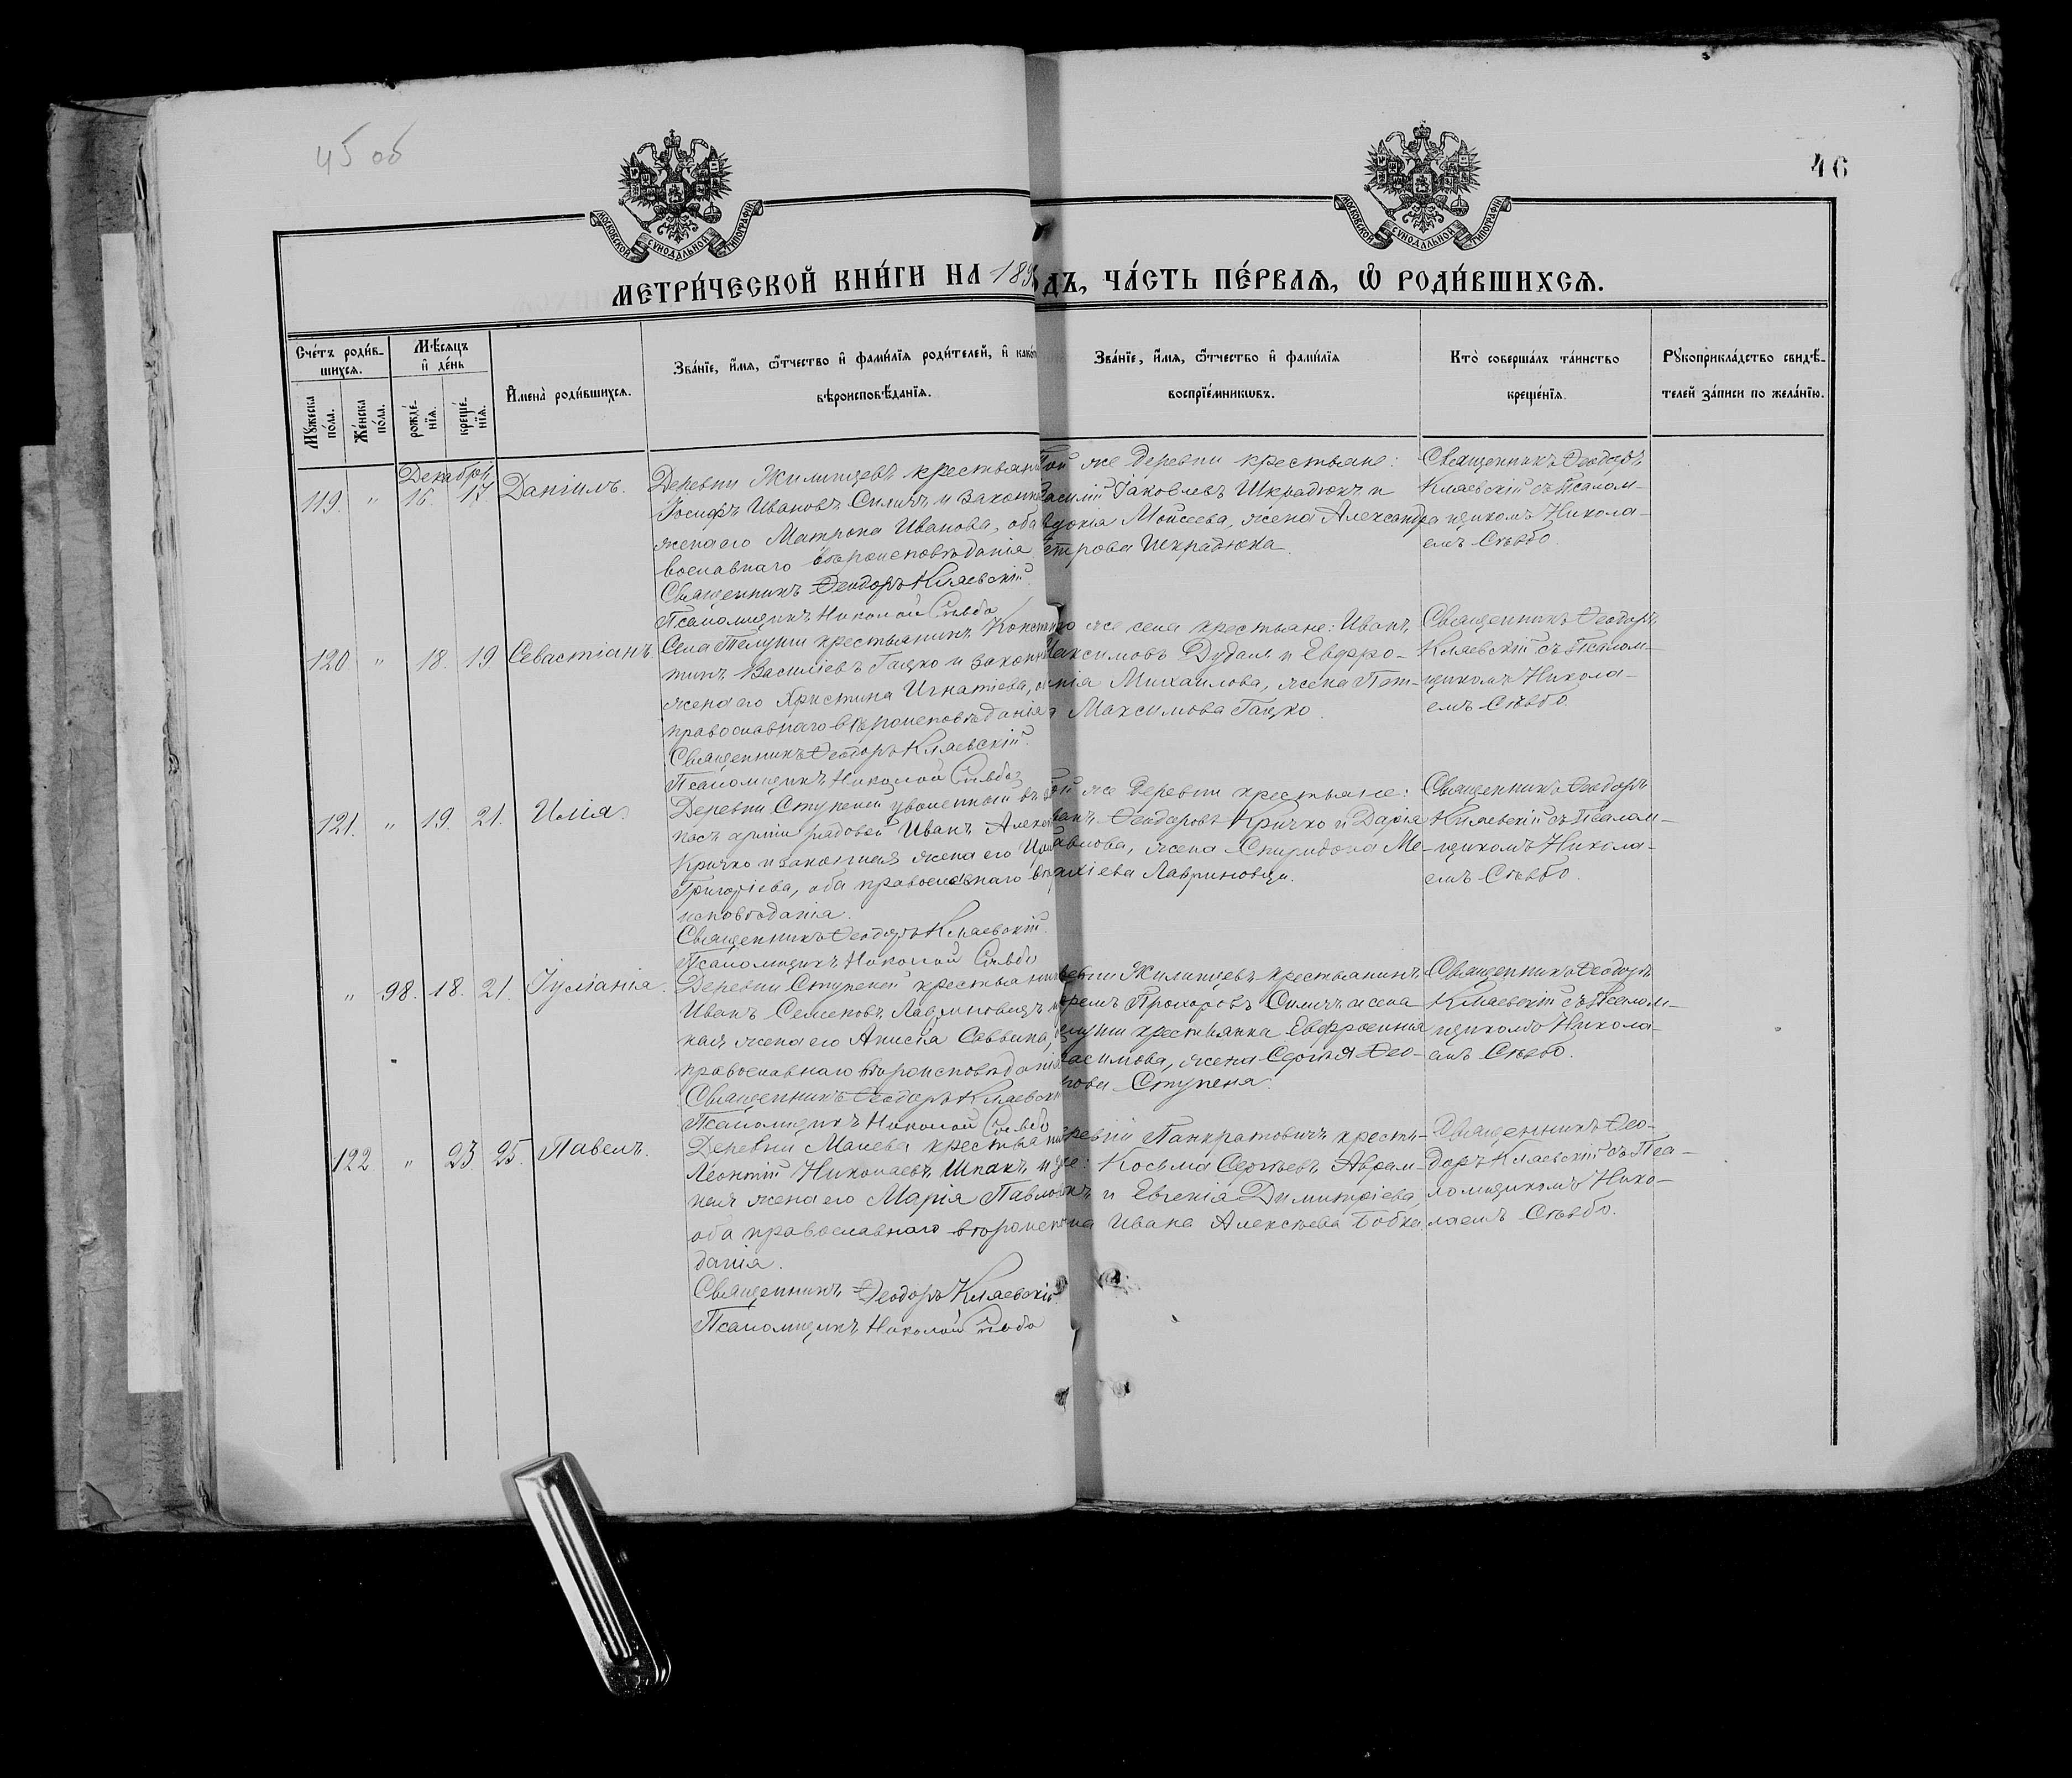 45 об
46
МОСКОВСКОЙ СУНОДАЛЬНОЙ ТИПОГРАФІИ
МОСКОВСКОЙ СУНОДАЛЬНОЙ ТИПОГРАФІИ
МЕТРИ́ЧЕСКОЙ КНИ́ГИ НА 189
ДЪ, ЧА́СТЬ ПЕ́РВАѦ, Ѡ҆ РОДИ́ВШИХСѦ.
Сче́тъ роди́в-
шихсѧ.
Мѣ́сѧцъ
и҆ де́нь
Мꙋ́жеска по́ла.
Же́нска по́ла.
рожде́-нїѧ.
креще́-нїѧ.
И҆мена̀ роди́вшихсѧ.
Зва́нїе, и҆́мѧ, ѻ҆́тчество и҆ фами́лїѧ роди́телей, и҆ како́
вѣроисповѣ́данїѧ.
Зва́нїе, и҆́мѧ, ѻ҆́тчество и҆ фами́лїѧ
воспрїе́мникѡвъ.
Кто̀ соверша́лъ та́инство
креще́нїѧ.
Рꙋкоприкла́дство свидѣ́-
телей за́писи по жела́нїю.
Декабрь
119. " 15. 17 Даніилъ.
Деревни Жилинцевъ крестьян
Іосифъ Ивановъ Силичъ и закон
жена его Матрона Иванова, оба
вославнаго вѣроисповѣданія
Священникъ Ѳеодоръ Кляевскій
Псаломщикъ Николай Сѣвбо
той же деревни крестьяне:
Василій Іаковлевъ Шкрадюкъ и
Евдокія Моисеева, жена Александра
Петрова Шкрадюка.
Священникъ Ѳеодоръ
Кляевскій съ Псалом-
щикомъ Никола-
емъ Сѣвбо.
120 " 18. 19 Севастіанъ.
Села Телуши крестьянинъ Конст
тинъ Василіевъ Гацко и закон
жена его Христина Игнатіева, о
православнаго вѣроисповѣданія
Священникъ Ѳеодоръ Кляевскій
Псаломщикъ Николай Сѣвбо
го же села крестьяне: Иванъ
Максимовъ Дудаль и Евфро-
нія Михаилова, жена Пет-
Максимова Гацко.
Священникъ Ѳеодоръ
Кляевскій съ Псалом-
щикомъ Никола-
емъ Сѣвбо.
121. " 19. 21. Илія.
Деревни Ступеней уволенный въ за
пасъ арміи рядовой Иванъ Алек
Кричко и законная жена его
Григоріева, оба православнаго вѣ
исповѣданія.
Священникъ Ѳеодоръ Кляевскій
Псаломщикъ Николай Сѣвбо
той же деревни крестьяне:
Иванъ Ѳеодоровъ Кричко и Дарія
Павлова, жена Спиридона Ме-
ахіева Лавриновца.
Священникъ Ѳеодоръ
Кляевскій съ Псалом-
щикомъ Никола-
емъ Сѣвбо.
" 98. 18. 21. Іуліанія.
Деревни Ступеней крестьянинъ
Иванъ Семеновъ Лавриновецъ и
ная жена его Анисія Саввина,
православнаго вѣроисповѣданія
Священникъ Ѳеодоръ Кляевскій
Псаломщикъ Николай Сѣвбо
деревни Жилинцевъ крестьянинъ
Прохоровъ Силичъ и села
Телуши крестьянка Евфросинія
асимова, жена Сергія Ѳео-
рова Ступеня.
Священникъ Ѳеодоръ
Кляевскій съ Псалом-
щикомъ Никола-
емъ Сѣвбо.
122 " 23 25. Павелъ.
Деревни Малева крестьянин
Леонтій Николаевъ Шпакъ и за
ная жена его Марія Павло
оба православнаго вѣроиспо
данія.
Священникъ Ѳеодоръ Кляевскій
Псаломщикъ Николай Сѣвбо
деревни Панкратовичъ крестья-
не: Косьма Сергѣевъ Аврам-
и Евгенія Димитріева,
жена Ивана Алексѣева Бобка.
Священникъ Ѳео-
доръ Кляевскій съ Пса-
ломщикомъ Нико-
лаемъ Сѣвбо.